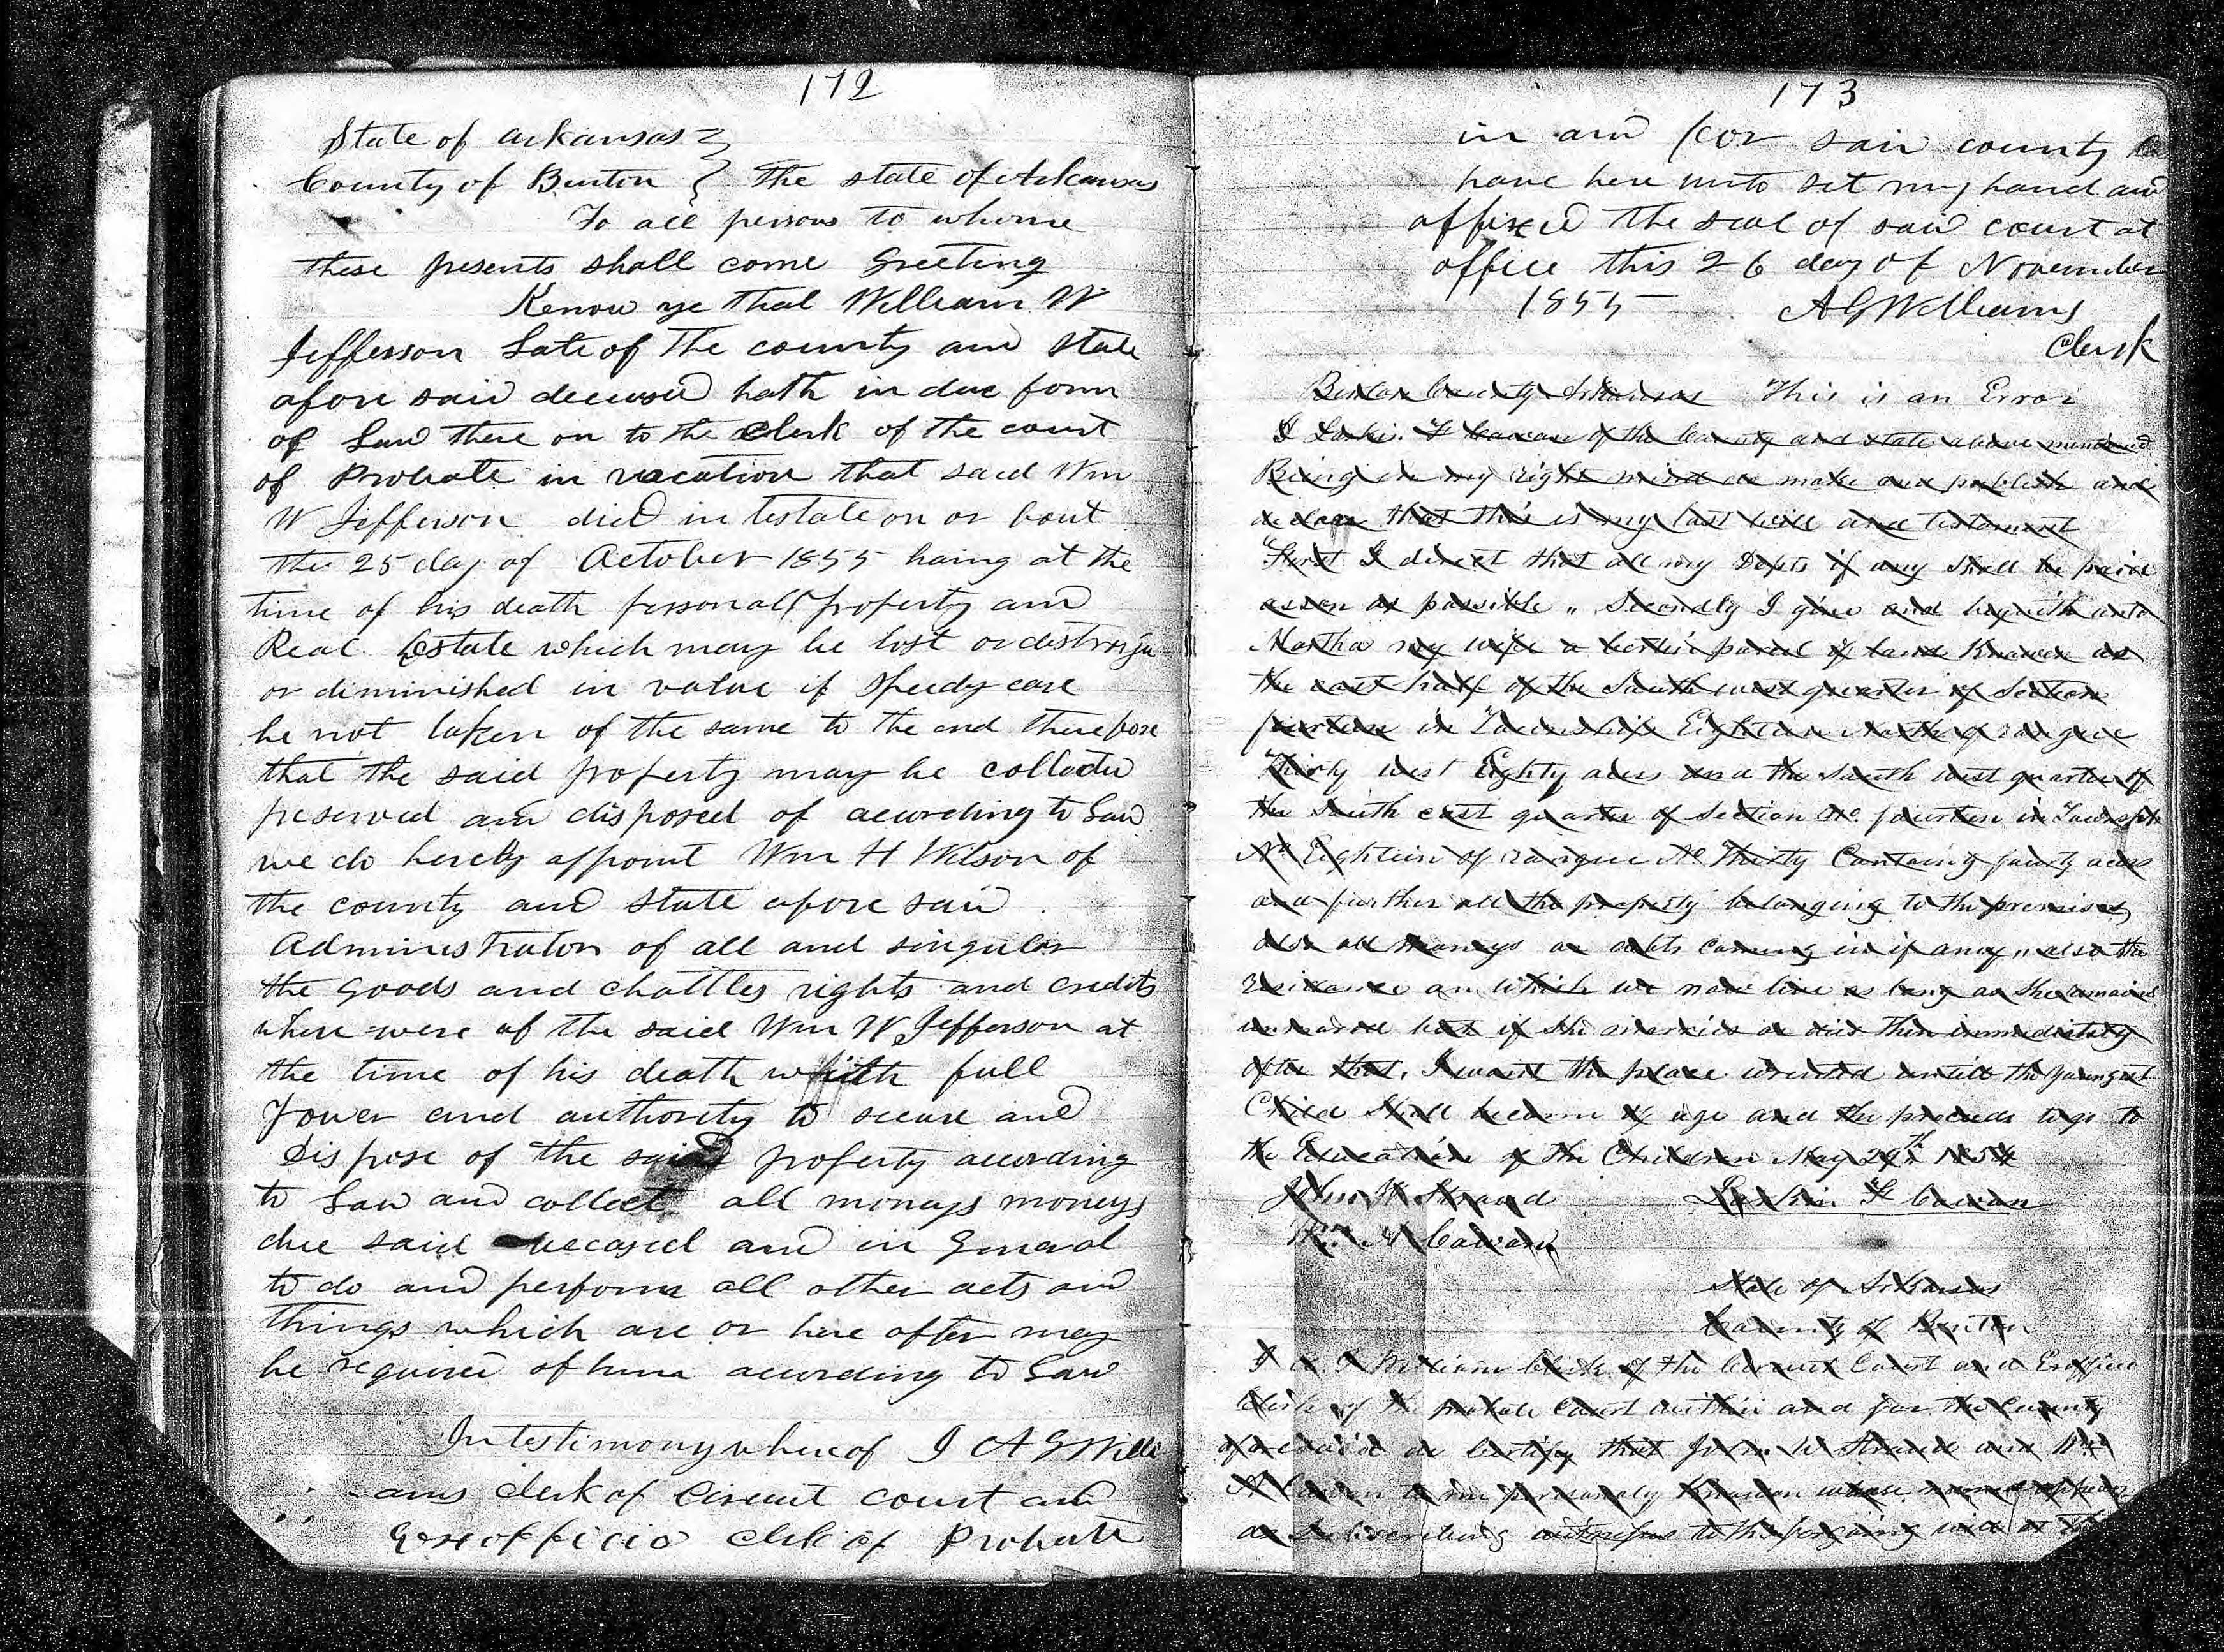 172
State of arkansas
County of Benton } The state of Arkansas
To all persons to whome
these presents shall come Greeting
Kenow ye that William W
Jefferson Late of the county and State
afore said deceased hath in due form
of Law there on to the Clerk of the court
of Probate in vacation that said Wm
W Jefferson died in testate on or bout
the 25 day of October 1855 haing at the
time of his death personall property and
Real Estate which may be lost or
or diminished in value if speedy care
be not taken of the same to the end therefore
that the said property may be collected
preserved and disposed of acording to Law
we do hereby appoint Wm H Wilson of
the county and State afore said
Administrator of all and singular
the goods and chattles rights and credits
where were of the said Wm W Jefferson at
the time of his death with full
Power and authority to secure and
Dispose of the said property according
to Law and collect all monays moneys
due said decased and in General
to do and perform all other acts and
things which are or here after may
be required of him according to Law
In testimony whereof I A G Willi
ams clerk of Circuit court and
Exeofficio clk of Probate
173
in and for said county
have here unto set my hand and
affixed the seal of said court at
office this 26 day of November
1855 A G Williams
Clerk
Benton County Arkansas This is an Error
I Larkin F Cowan of the County and state above mentioned
Being in my right mind do make and publish and
declare that this is my last will and Testament
First I direct that all my Depts if any shall be paid
as son as possible " Secondly I give and bequith unto
Martha my wife a certin parcel of land Knowen as
the east half of the South west quarter of Section
fourteen in Township Eighteen North of rangue
Thirty west Eighty acers and the South west quarter of
the South east quarter of Section No. fourteen in Townsph
No Eighteen of rangue No Thirty Containg fourty acers
and further all the property belonging to the premises
also all moneys or debts coming in if any " also the
residance on which we now live as long as she remains
unmared but if she marries or dies then immediately
after that, I want the place wrented untill the youngest
Child Shall becom of age and the proceeds to go to
the Education of the Children May 29th 1854
John W Straud Larkin F Cowan
Wm A Cowan
State of Arkansas
County of Benton
I A G William Clerk of the Circuit Court and Exoffico
Clerk of the probate Court within and for the County
aforesaid do certify that John W Straud and Wm
A Cowan to me personaly Knowen whose names appear
as Subscribing witnefses to the forgoing will